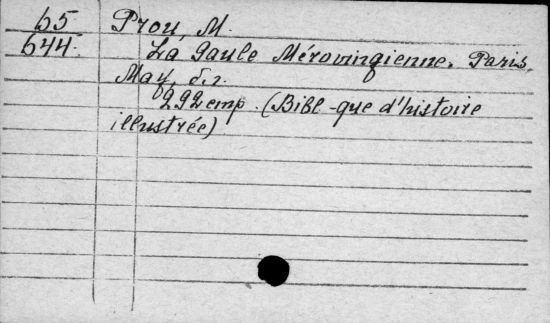 65 Prou, M.
644. La Gaule Mérovingienne. Paris,
May, б.г.
292 стр. (Bibl-que d'histoire
illustrée)